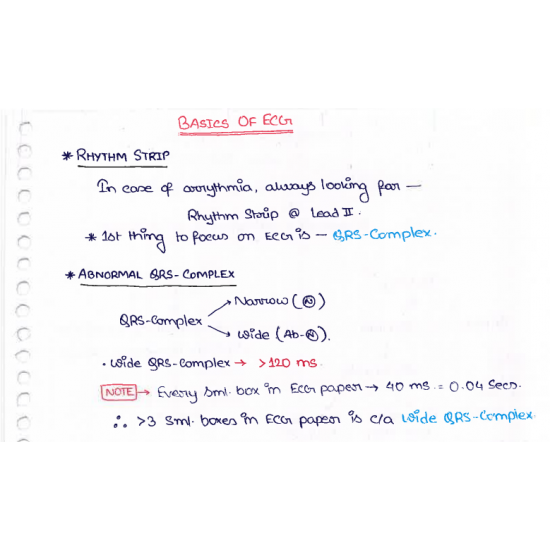 BASICS OF ECG
* RHYTHM STRIP
In case of arrythmia, always looking for —
Rhythm Strip @ Lead II.
* 1st thing to focus on ECG is — QRS-Complex.
* ABNORMAL QRS-COMPLEX
QRS-Complex
→ Narrow (N)
→ Wide (Ab-N).
• Wide QRS-Complex → >120 ms.
NOTE → Every sml. box in ECG paper → 40 ms. = 0.04 Secs.
∴ >3 sml. boxes in ECG paper is c/a Wide QRS-Complex.